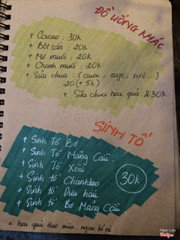 ĐỒ UỐNG KHÁC
+ Cacao : 30k
+ Bột sắn : 20k
+ Mơ muối : 20k
+ Chanh muối : 20k
+ Sữa chua : (cacao,
20 (+5k)
+ Sữa chua hoa quả 30k
SINH TỐ
+ Sinh Tố Bơ
+ Sinh Tố Mãng Cầu
+ Sinh Tố Xoài
+ Sinh Tố Chanhleo
+ Sinh tố Dưa hấu
+ Sinh tố Bơ Mãng Cầu
30k
hoa quả theo mùa